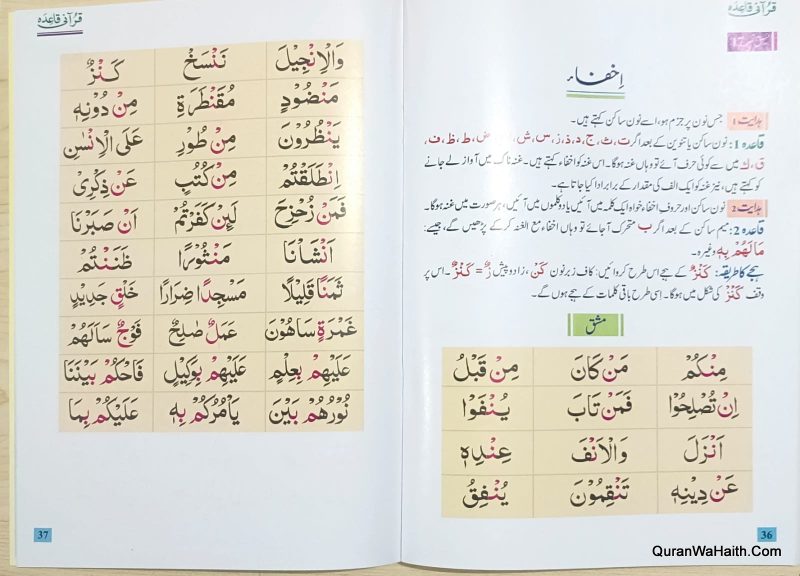 قرآنی قاعدہ
اِخفاء
ہدایت 1: جس نون پر جزم ہو، اسے نون ساکن کہتے ہیں۔
قاعدہ 1: نون ساکن یا تنوین کے بعد اگر ت، ث، ج، د، ذ، ز، س، ش، ض، ط، ظ، ف،
ق، ک میں سے کوئی حرف آئے تو وہاں غنہ ہوگا۔ اس غنہ کو اخفاء کہتے ہیں۔ غنہ ناک میں آواز لے جانے
کو کہتے ہیں، نیز غنہ کو ایک الف کی مقدار کے برابر ادا کیا جاتا ہے۔
ہدایت 2: نون ساکن اور حروف اخفاء خواہ ایک کلمہ میں آئیں یا دو کلموں میں آئیں، ہر صورت میں غنہ ہوگا۔
قاعدہ 2: میم ساکن کے بعد اگر ب متحرک آجائے تو وہاں اخفاء مع الغنہ کر کے پڑھیں گے، جیسے:
مَالَهُمْ بِهٖ وغیرہ۔
ہجے کا طریقہ: كَنْزٌ کے ہجے اس طرح کروائیں: کاف زبر نون كَنْ، زا دو پیش زٌ = كَنْزٌ۔ اس پر
وقف كَنْزْ کی شکل میں ہوگا۔ اِسی طرح باقی کلمات کے ہجے ہوں گے۔
مشق
مِنْكُمْ مَنْ كَانَ مِنْ قَبْلُ
اِنْ تُصْلِحُوْا فَمَنْ تَابَ يُنْفَوْا
اَنْزَلَ وَالْاَنْفَ عِنْدِهٖ
عَنْ دِيْنِهٖ تَنْقِمُوْنَ يُنْفِقُ
36
قرآنی قاعدہ
وَالْاِنْجِيْلَ نَنْسَخْ كَنْزٌ
مَنْضُوْدٍ مُقَنْطَرَةِ مِنْ دُوْنِهٖ
يَنْظُرُوْنَ مِنْ طُوْرِ عَلَى الْاِنْسٰنِ
اِنْطَلَقْتُمْ مِنْ كُتُبٍ عَنْ ذِكْرِیْ
فَمَنْ زُحْزِحَ لَئِنْ كَفَرْتُمْ اَنْ صَبَرْنَا
اَنْشَاْنَا مَنْثُوْرًا ظَنَنْتُمْ
ثَمَنًا قَلِيْلًا مَسْجِدًا ضِرَارًا خَلْقٍ جَدِيْدٍ
غَمْرَةٍ سَاهُوْنَ عَمَلٌ صَالِحٌ فَوْجٌ سَاَلَهُمْ
عَلَيْهِمْ بِعِلْمٍ عَلَيْهِمْ بِوَكِيْلٍ فَاحْكُمْ بَيْنَنَا
نُوْرُهُمْ بَيْنَ يَاْمُرُكُمْ بِهٖ عَلَيْكُمْ بِمَا
37
QuranWaHaith.Com